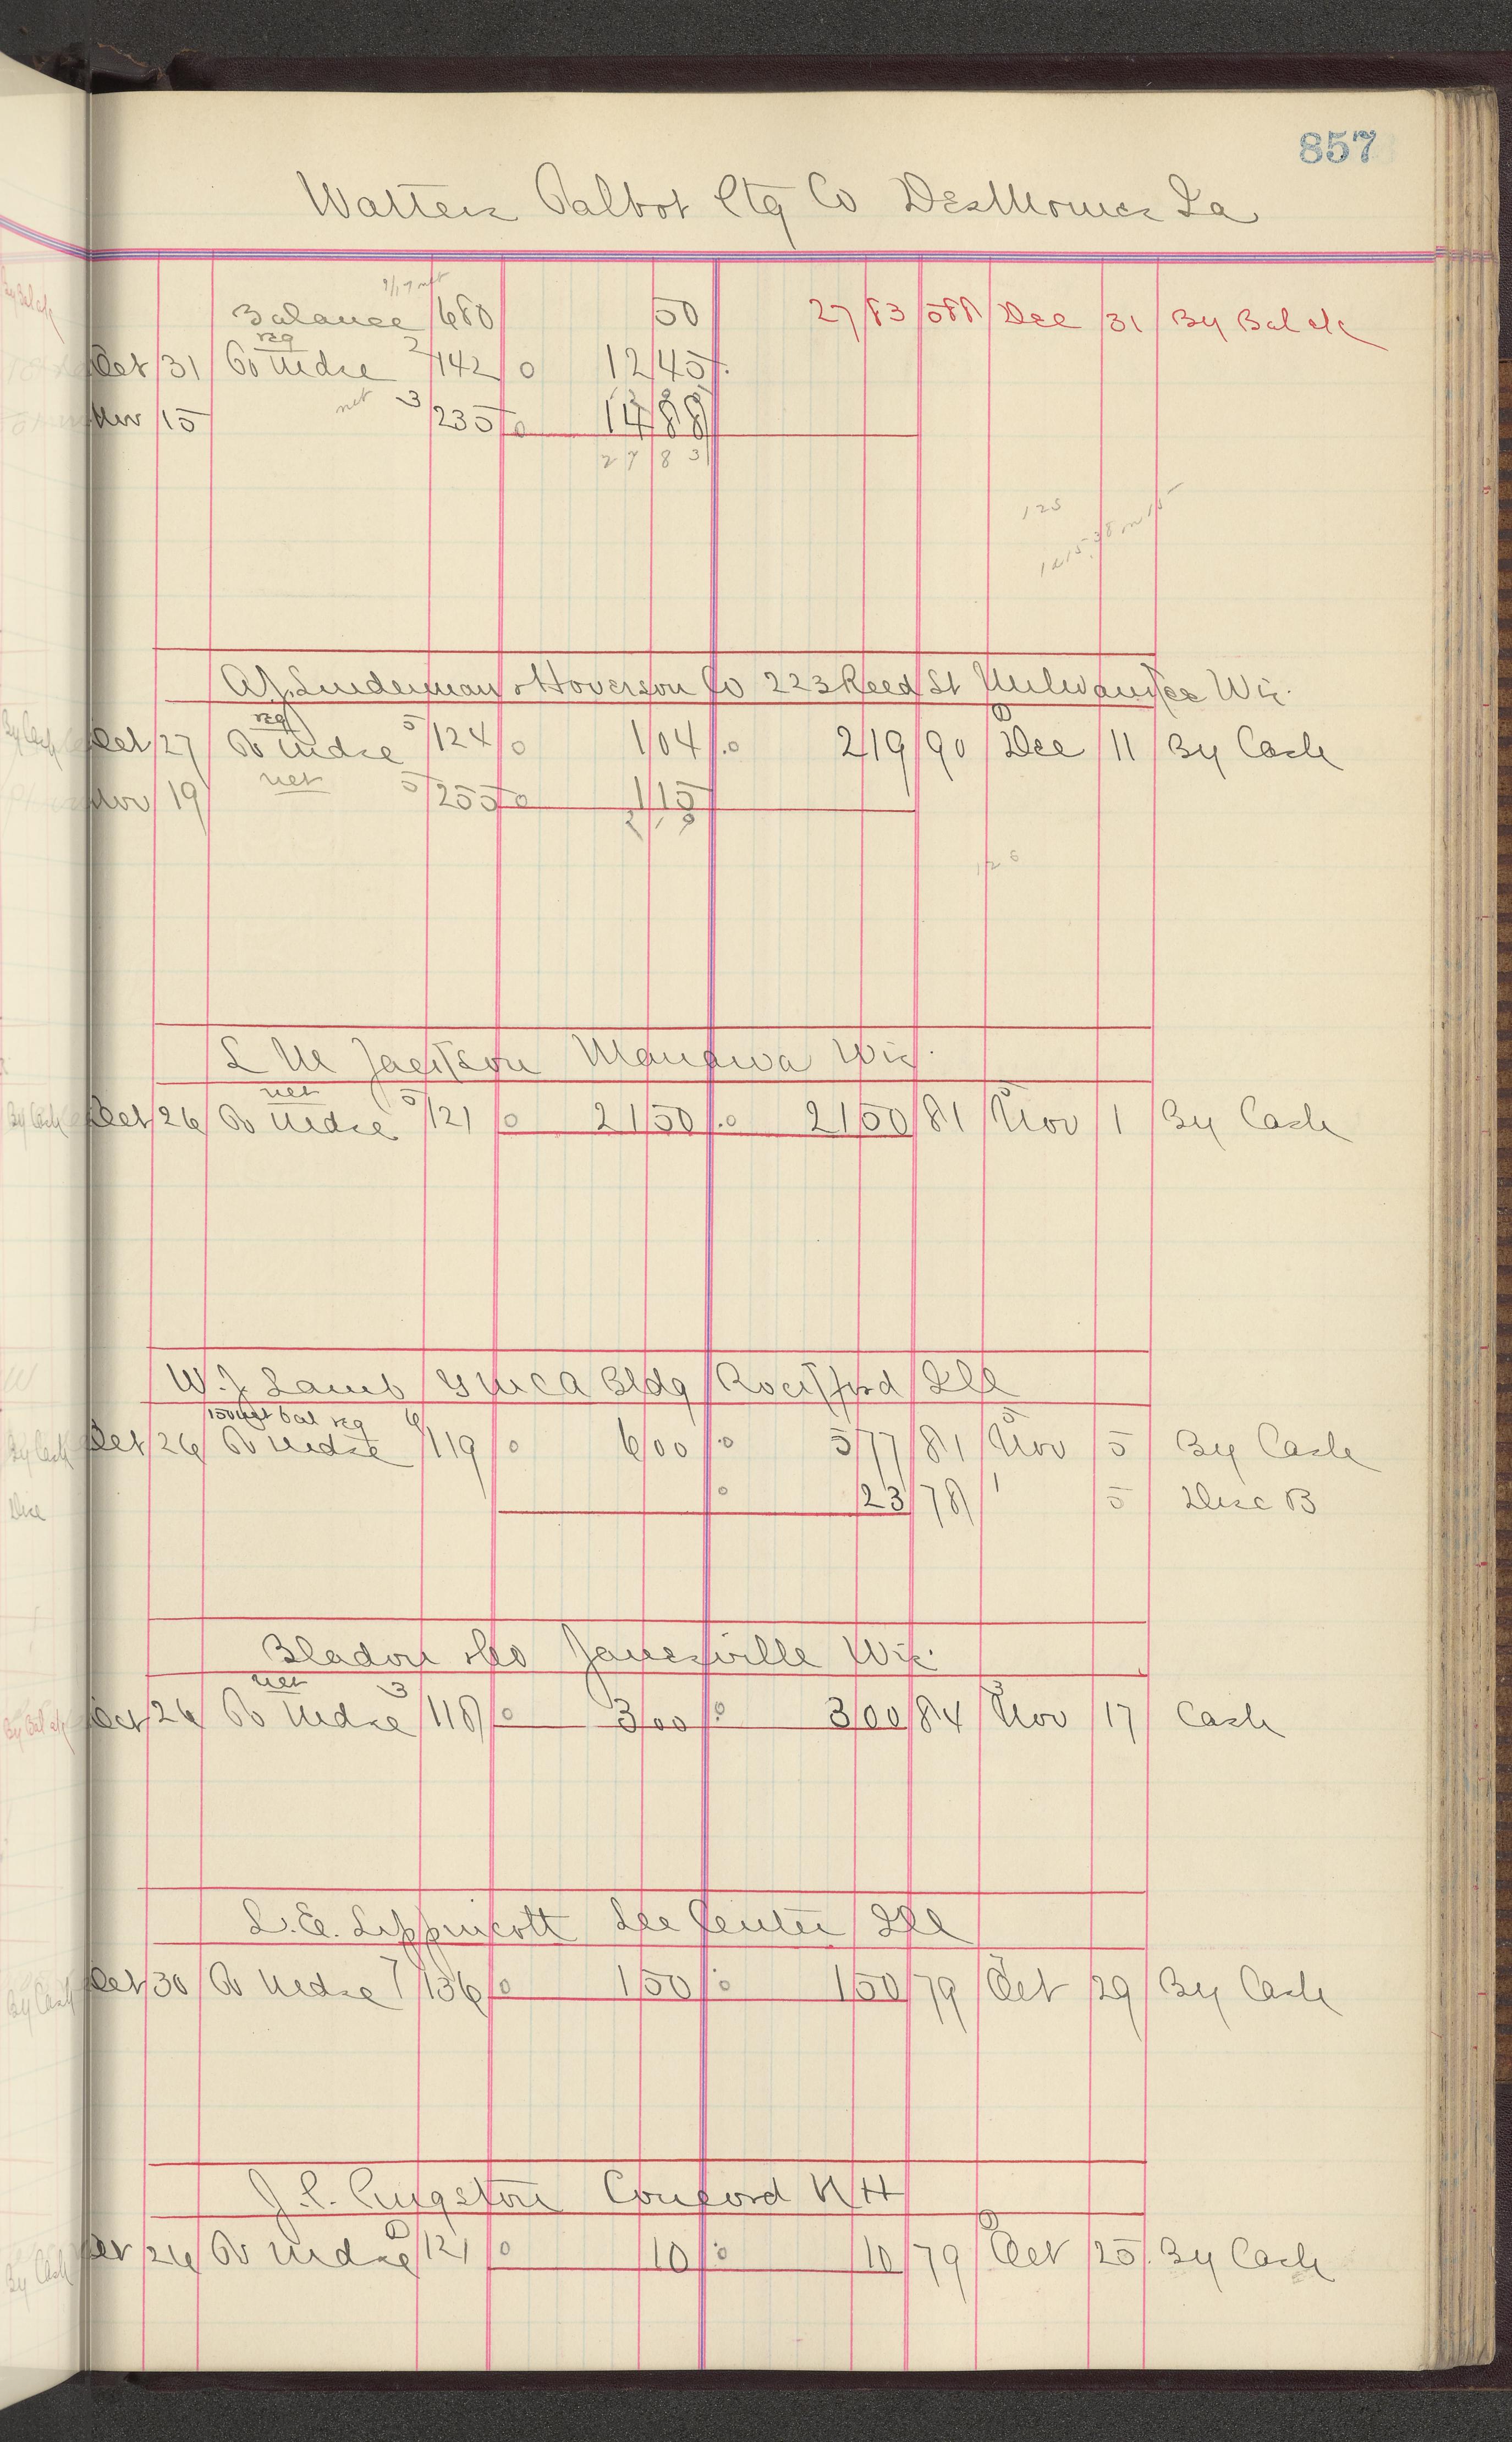 857
Walter Talbot Ctg Co Des Moines Ia
9/17 net
Balance 680 50 27 83 588 Dec 31 By Bal c/c
reg
Oct 31 To Mdse 2 142 0 12 45
Nov 15 net 3 235 0 14 88
27 83
125
A.J. Lindeman & Hoverson Co 223 Reed St Milwaukee Wis.
reg
Oct 27 To Mdse 5 124 0 1 04 0 2 19 90 Dec 11 By Cash
Nov 19 net 5 255 0 1 15
2 19
126
L M Jackson Manawa Wis.
net
Oct 26 To Mdse 5 121 0 21 50 0 21 50 81 Nov 1 By Cash
W. J. Lamb YMCA Bldg Rockford Ill
150 net bal reg
Oct 26 To Mdse 6 119 0 6 00 0 5 77 81 Nov 5 By Cash
0 23 78 1 5 Disc B
Bladon & Co Janesville Wis.
net
Oct 26 To Mdse 3 118 0 3 00 0 3 00 84 Nov 17 Cash
L. E. Lippincott Lee Center Ill
Oct 30 To Mdse 7 136 0 1 50 0 1 50 79 Oct 29 By Cash
J. C. Concord N H
Oct 26 To Mdse 0 121 0 10 0 10 79 Oct 25 By Cash